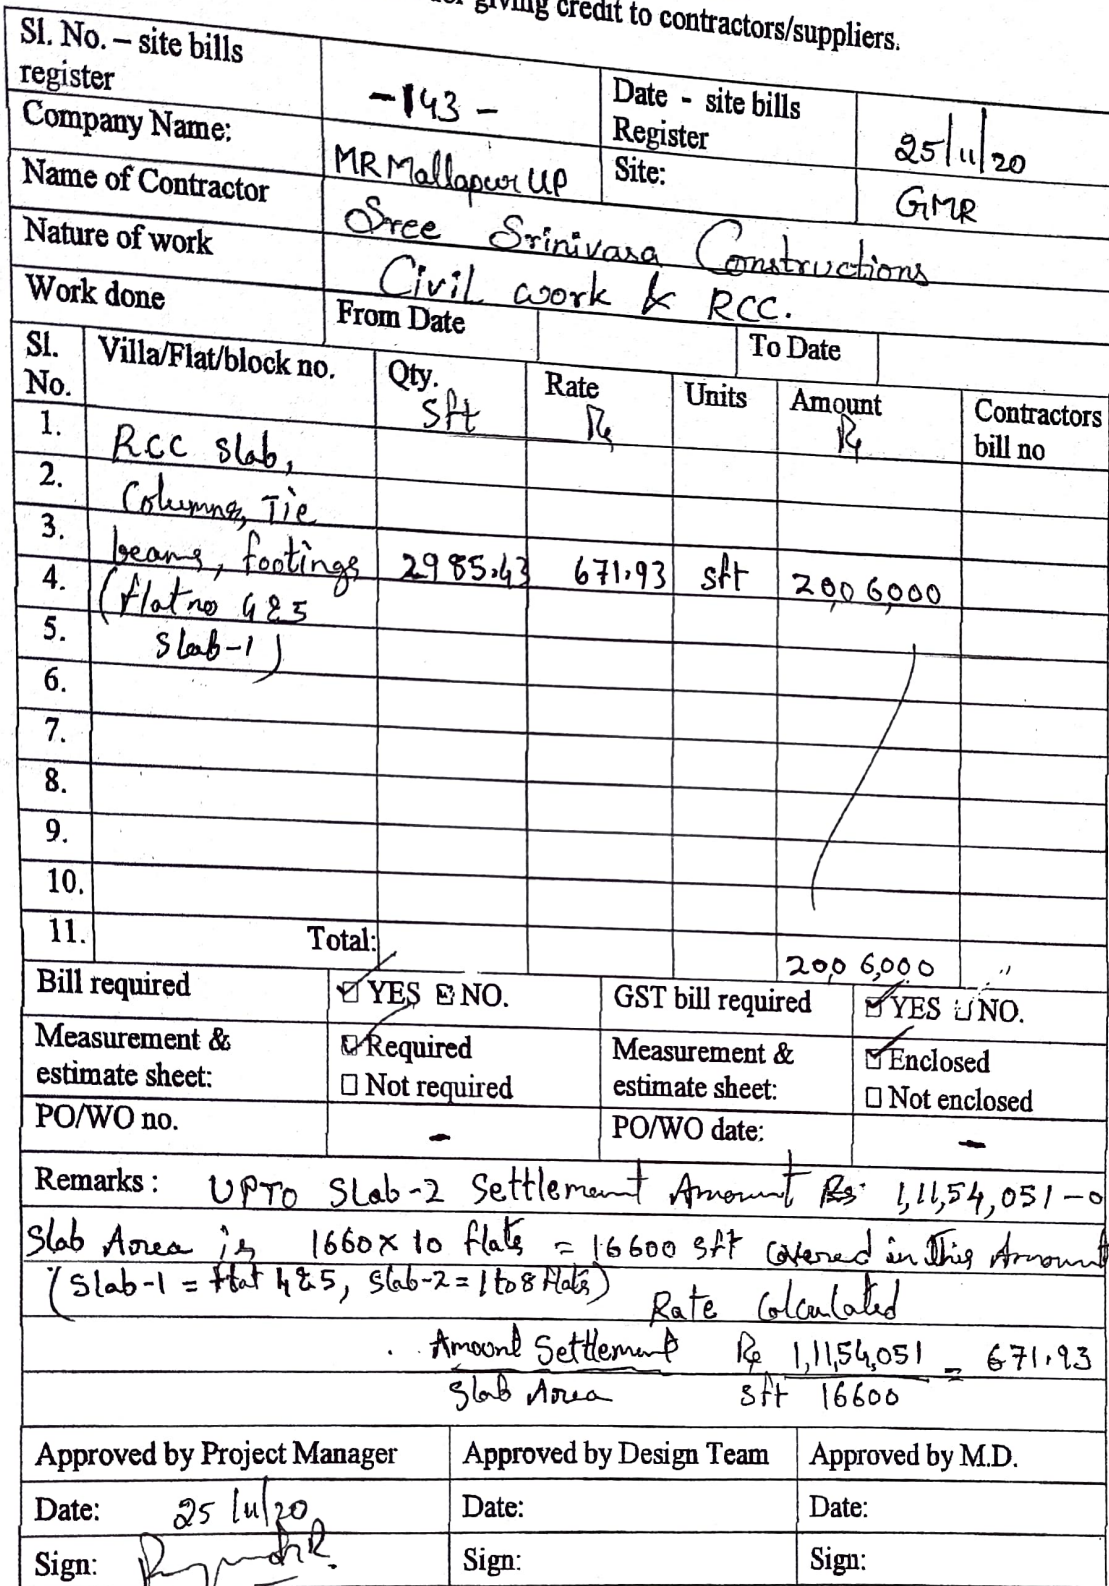 giving credit to contractors/suppliers.
Sl. No. – site bills register -143- Date - site bills Register 25/11/20
Company Name: MR Mallapur UP Site: GMR
Name of Contractor Sree Srinivasa Constructions
Nature of work Civil work & RCC.
Work done From Date To Date
Sl. No. Villa/Flat/block no. Qty. Sft Rate Rs Units Amount Rs Contractors bill no
1. RCC slab,
2. Columns, Tie
3. beams, footings 2985.43 671.93 sft 20,06,000
4. (flat no 4 & 5
5. Slab-1)
6.
7.
8.
9.
10.
11. Total: 20,06,000
Bill required YES NO. GST bill required YES NO.
Measurement & estimate sheet: Required Not required Measurement & estimate sheet: Enclosed Not enclosed
PO/WO no. - PO/WO date: -
Remarks : UPTO Slab-2 Settlement Amount Rs. 1,11,54,051-0
Slab Area is 1660 x 10 flats = 16600 sft covered in This Amount
(Slab-1 = flat 4 & 5, Slab-2 = 1 to 8 flats)
Rate Calculated
Amount Settlement Rs 1,11,54,051 = 671.93
Slab Area sft 16600
Approved by Project Manager Approved by Design Team Approved by M.D.
Date: 25/11/20 Date: Date:
Sign: Sign: Sign: